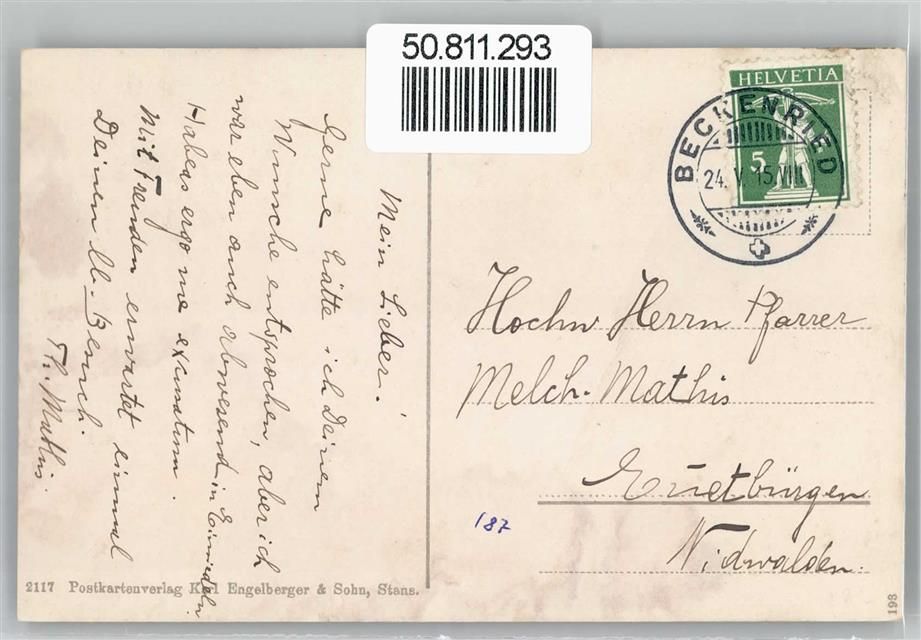 50.811.293
HELVETIA
5
BECKENRIED
24. V. 15. VIII
Mein Lieber!
Gerne hätte ich Deinem
Wunsche entsprochen, aber ich
war eben auch abwesend in Einsiedeln.
Habeas ergo me excusatum.
Mit Freuden erwartet einmal
Deinen lb. Besuch.
Fl. Mathis.
Hochw Herrn Pfarrer
Melch. Mathis
Ennetbürgen
Nidwalden.
187
2117 Postkartenverlag Karl Engelberger & Sohn, Stans.
193